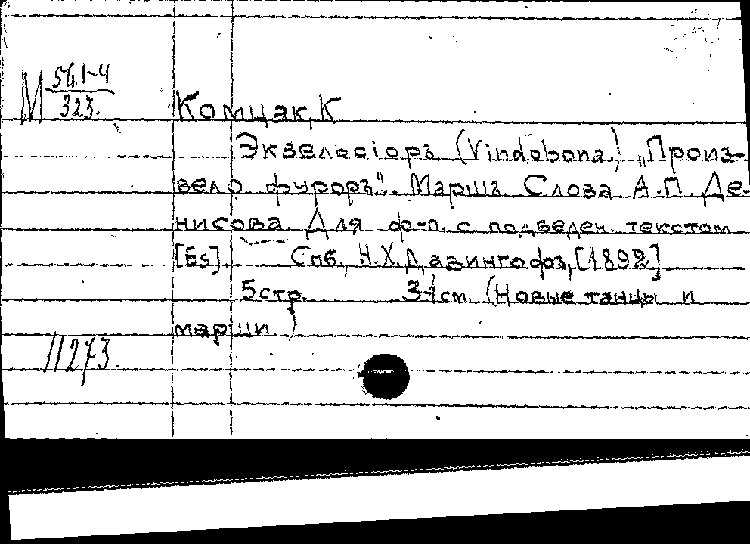 М 561-4
323.
Комцак, К
Экзелсіоръ (Vindobona.) „Произ-
вело фуроръ". Маршъ. Слова А.П. Де-
нисова. Для ф-п. с подведен. текстом
[Es]. Спб., Н.Х. Давингофъ, [1892]
5 стр. 34 см. (Новые танцы и
марши.)
11273.